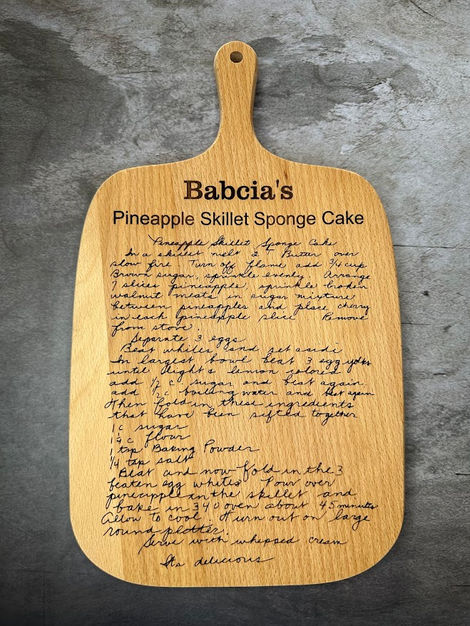 Babcia's
Pineapple Skillet Sponge Cake
Pineapple Skillet Sponge Cake
In a skillet melt 2 T Butter over
slow fire. Turn off flame add 3/4 cup
Brown sugar, sprinkle evenly. Arrange
7 slices pineapple, sprinkle broken
walnut meats in sugar mixture
between pineapples and place cherry
in each pineapple slice. Remove
from stove.
Separate 3 eggs
Beat whites and set aside
In largest bowl beat 3 egg yolks
until light & lemon colored
add 1/2 c sugar and beat again
add 1/2 c boiling water and beat again
Then fold in these ingredients
that have been sifted together
1 c sugar
c flour
1 tsp Baking Powder
1/4 tsp salt
Beat and now fold in the 3
beaten egg whites. Pour over
pineapple in the skillet and
bake in 340 oven about 45 minutes
Allow to cool. Turn out on large
round platter.
Serve with whipped cream
Its delicious